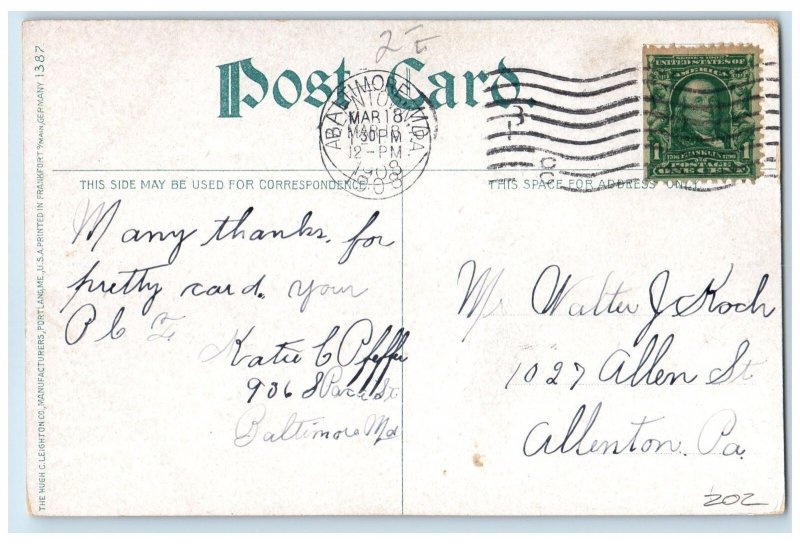 2-
Post Card.
BALTIMORE, MD.
MAR 18
30PM
12-PM
1908
UNITED STATES OF
AMERICA
1706 FRANKLIN 1790
1 POSTAGE 1
ONE CENT
THIS SIDE MAY BE USED FOR CORRESPONDENCE.
THIS SPACE FOR ADDRESS ONLY.
Many thanks. for
pretty card. your
P C F
Katie C Pfeffer
906 S Paca St
Baltimore Md
Mr Walter J Koch
1027 Allen St
Allenton. Pa.
THE HUGH C. LEIGHTON CO., MANUFACTURERS, PORTLAND, ME., U.S.A. PRINTED IN FRANKFORT o/MAIN, GERMANY 1387
202